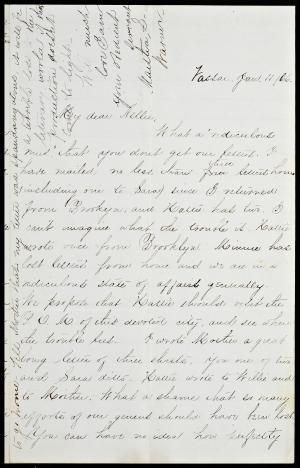 Vassar. Jan. 11/66.
My dear Nellie,
What a "ridiculous
mus" that you don't get our letters. I
have mailed no less than three letters home
including one to Sara, since I returned
from Brooklyn, and Hattie has two. I
can't imagine what the trouble is. Hattie
wrote once from Brooklyn. Minnie has
lost letters from home and we are in a
ridiculous state of affairs generally.
We propose that Hattie should visit the
P. O. M. of this devoted city, and see where
the trouble lies. I wrote Mother a great
long letter of three sheets, you one of two
and Sara ditto. Hattie wrote to Willie and
to Mother. What a shame that so many
efforts of our genius should have been lost
You can have no idea how perfectly
to go home. Tell Mother that my letter was
wonder
productions doesn't
come to light.
With much
love I am
Your obedient
servant
Martha S.
Warner